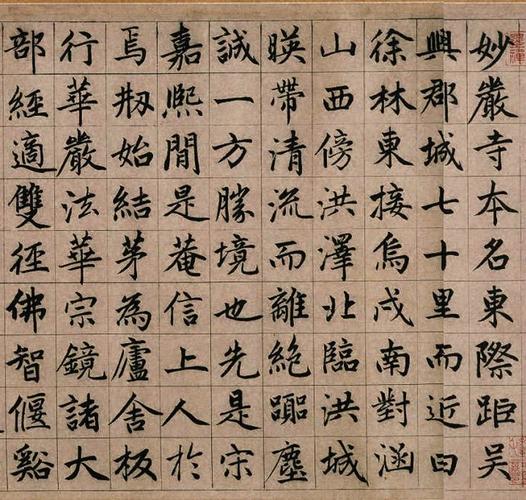 妙嚴寺本名東際距吳
興郡城七十里而近曰
徐林東接烏戍南對涵
山西傍洪澤北臨洪城
暎帶清流而離絕囂塵
誠一方勝境也先是宋
嘉熙間是菴信上人於
焉刱始結茅為廬舍板
行華嚴法華宗鏡諸大
部經適雙徑佛智偃谿